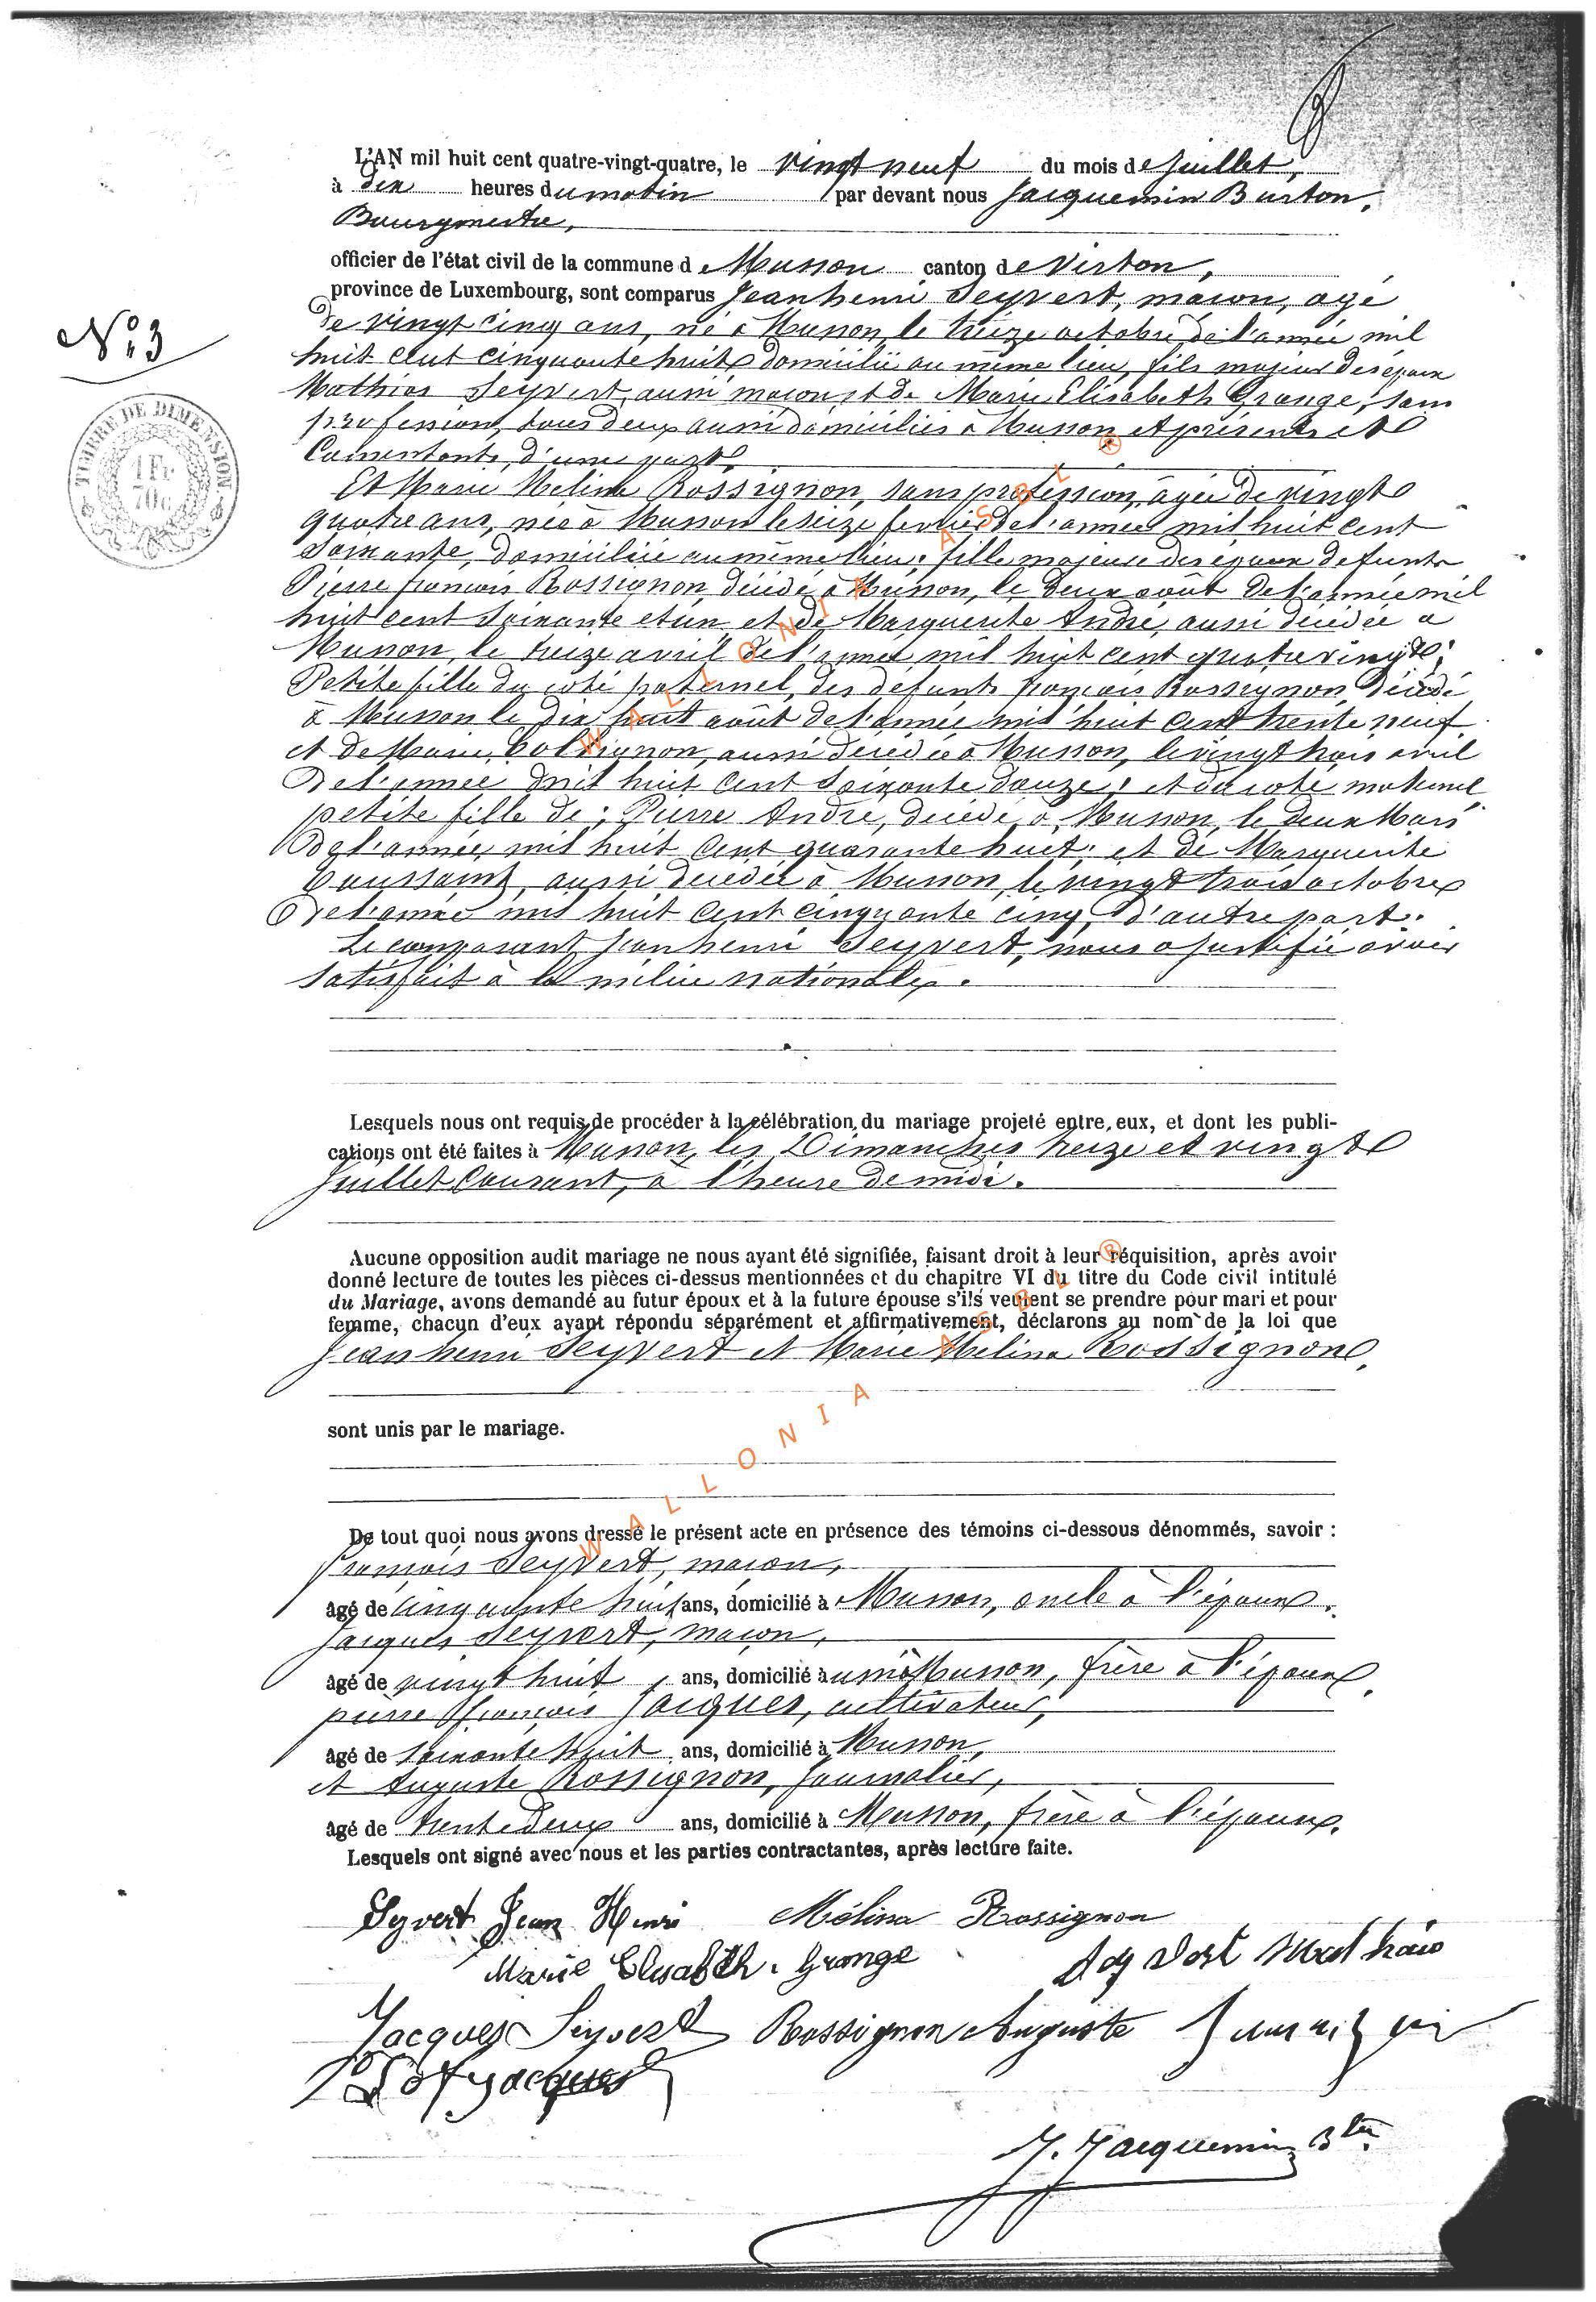 L'AN mil huit cent quatre-vingt-quatre, le vingt neuf du mois de juillet,
à dix heures du matin par devant nous Jacquemin Burton,
Bourgmestre,
officier de l'état civil de la commune d Musson canton de Virton,
province de Luxembourg, sont comparus Jean henri Seyvert, maçon, agé
N° 3
de vingt cinq ans, né à Musson le treize octobre de l'année mil
huit cent cinquante huit domicilié au même lieu, fils majeur des époux
TIMBRE DE DIMENSION
1 Fr
70c
Mathias Seyvert, aussi maçon et de Marie Elisabeth Grange, sans
profession, tous deux aussi domiciliés à Musson et présents et
Consentants, d'une part.
Et Marie Mélina Rossignon, sans profession, âgée de vingt
quatre ans, née à Musson le seize fevrier de l'année mil huit cent
soixante, domiciliée au même lieu, fille majeure des époux defunts
Pierre françois Rossignon, décédé à Musson, le deux août de l'année mil
huit cent soixante et un et de Marguerite André, aussi décédée à
Musson, le treize avril de l'année mil huit cent quatre vingt;
Petite fille du coté paternel, des défunts françois Rossignon décédé
à Musson le dix huit août de l'année mil huit cent trente neuf
et de Marie aussi décédée à Musson, le vingt trois avril
de l'année mil huit cent soixante douze; et du coté maternel
petite fille de; Pierre André, décédé à Musson, le deux Mars
de l'année mil huit cent quarante huit; et de Marguerite
Toussaint, aussi décédée à Musson, le vingt trois octobre
de l'année mil huit cent cinquante cinq, d'autre part.
Le comparant Jean henri Seyvert, nous a justifié avoir
satisfait à la milice nationale.
Lesquels nous ont requis de procéder à la célébration du mariage projeté entre eux, et dont les publi-
cations ont été faites à Musson, les Dimanches treize et vingt
Juillet Courant, à l'heure de midi.
Aucune opposition audit mariage ne nous ayant été signifiée, faisant droit à leur réquisition, après avoir
donné lecture de toutes les pièces ci-dessus mentionnées et du chapitre VI du titre du Code civil intitulé
du Mariage, avons demandé au futur époux et à la future épouse s'ils veulent se prendre pour mari et pour
femme, chacun d'eux ayant répondu séparément et affirmativement, déclarons au nom de la loi que
Jean henri Seyvert et Marie Mélina Rossignon,
sont unis par le mariage.
WALLONIA ASBL ®
WALLONIA ASBL ®
De tout quoi nous avons dressé le présent acte en présence des témoins ci-dessous dénommés, savoir :
François Seyvert, maçon,
âgé de cinquante huit ans, domicilié à Musson, oncle à l'époux.
Jacques Seyvert, maçon,
âgé de vingt huit ans, domicilié à Musson, frère à l'époux.
pierre françois Jacques, cultivateur,
âgé de soixante huit ans, domicilié à Musson,
et Auguste Rossignon, Journalier,
âgé de trente deux ans, domicilié à Musson, frère à l'épouse.
Lesquels ont signé avec nous et les parties contractantes, après lecture faite.
Seyvert Jean Henri Mélina Rossignon
Marie Elisabeth Grange
Jacques Seyvert Rossignon Auguste
Jacques
J. Jacquemin Btn